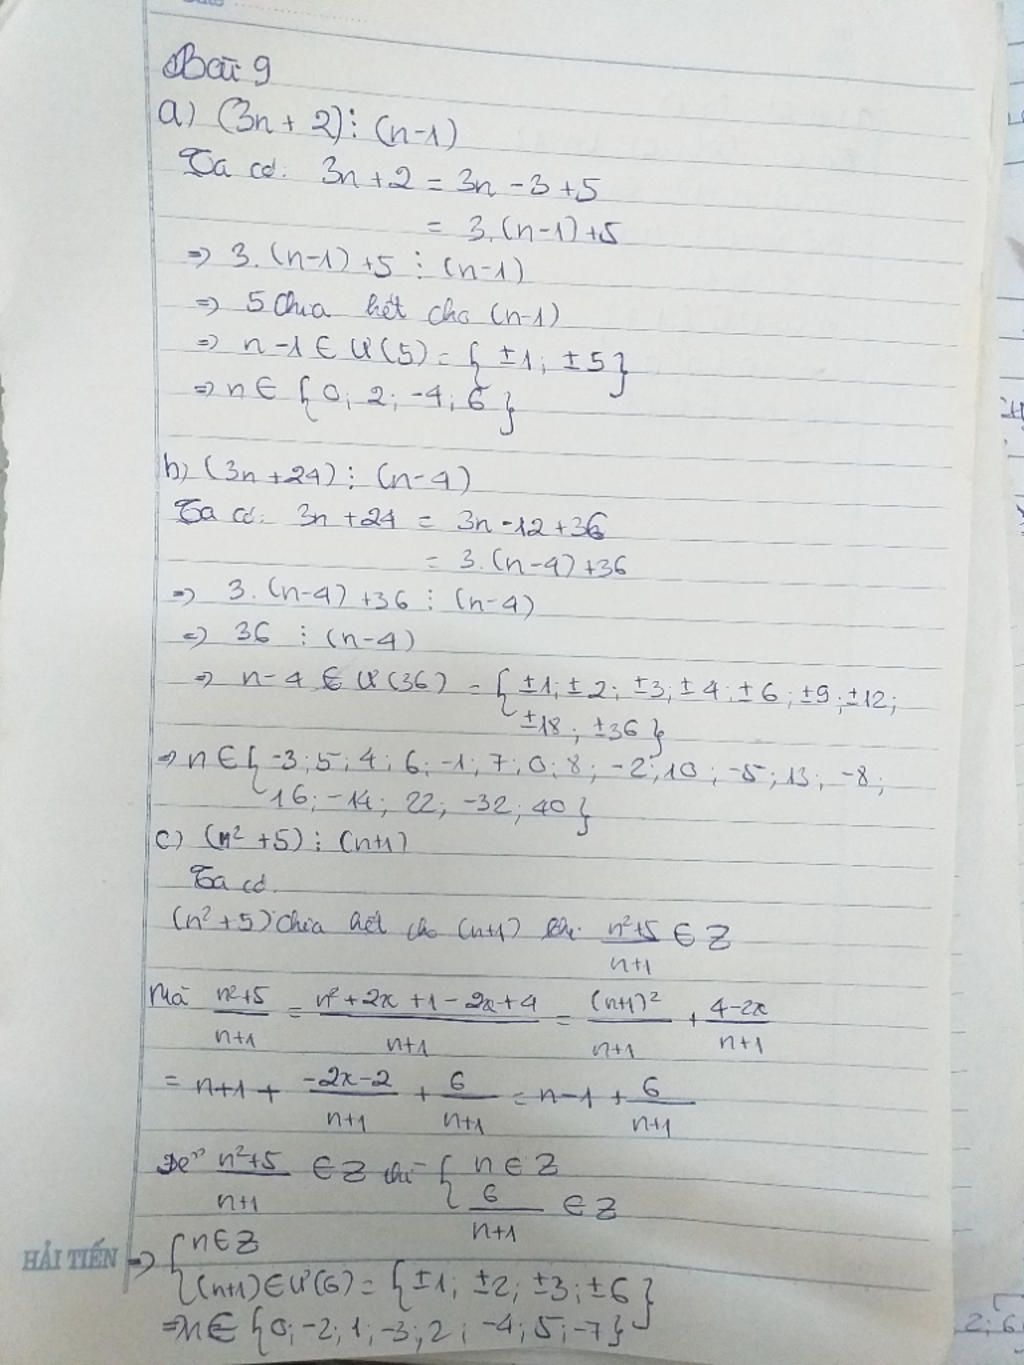 Bài 9
a) (3n + 2) ⋮ (n-1)
Ta có: 3n + 2 = 3n - 3 + 5
= 3.(n-1) + 5
=> 3.(n-1) + 5 ⋮ (n-1)
=> 5 chia hết cho (n-1)
=> n-1 ∈ Ư(5) = { ±1; ±5}
=> n ∈ {0; 2; -4; 6}
b) (3n + 24) ⋮ (n-4)
Ta có: 3n + 24 = 3n - 12 + 36
= 3.(n-4) + 36
=> 3.(n-4) + 36 ⋮ (n-4)
=> 36 ⋮ (n-4)
=> n-4 ∈ Ư(36) = { ±1; ±2; ±3; ±4; ±6; ±9; ±12;
±18; ±36}
=> n ∈ { -3; 5; 4; 6; -1; 7; 0; 8; -2; 10; -5; 13; -8;
16; -14; 22; -32; 40}
c) (n² + 5) ⋮ (n+1)
Ta có
(n² + 5) chia hết cho (n+1) thì n²+5/n+1 ∈ Z
Mà n²+5/n+1 = n²+2x+1-2x+4/n+1 = (n+1)²/n+1 + 4-2x/n+1
= n+1 + -2x-2/n+1 + 6/n+1 = n-1 + 6/n+1
Để n²+5/n+1 ∈ Z thì { n ∈ Z
6/n+1 ∈ Z
HẢI TIẾN => { n ∈ Z
(n+1) ∈ Ư(6) = { ±1; ±2; ±3; ±6}
=> n ∈ {0; -2; 1; -3; 2; -4; 5; -7}
2; 6